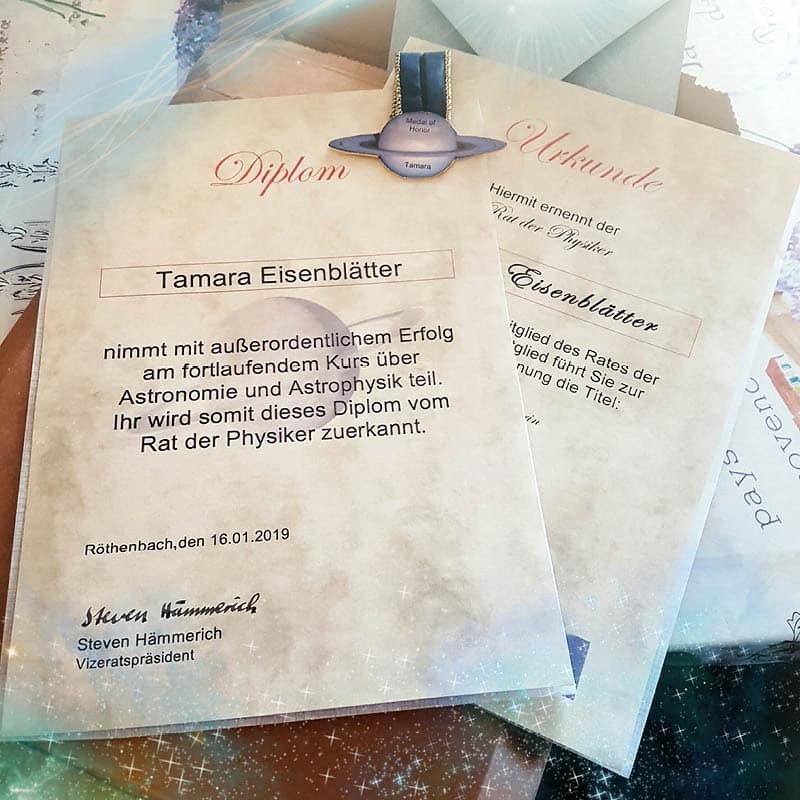 Medal of
Honor
Tamara
Diplom
Tamara Eisenblätter
nimmt mit außerordentlichem Erfolg
am fortlaufendem Kurs über
Astronomie und Astrophysik teil.
Ihr wird somit dieses Diplom vom
Rat der Physiker zuerkannt.
Röthenbach,den 16.01.2019
Steven Hämmerich
Steven Hämmerich
Vizeratspräsident
Urkunde
Hiermit ernennt der
Rat der Physiker
Eisenblätter
itglied des Rates der
glied führt Sie zur
nung die Titel:
pays